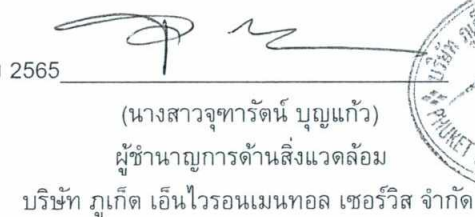 2565
(นางสาวจุฑารัตน์ บุญแก้ว)
ผู้ชำนาญการด้านสิ่งแวดล้อม
บริษัท ภูเก็ต เอ็นไวรอนเมนทอล เซอร์วิส จำกัด
บริษัท
PHUKET